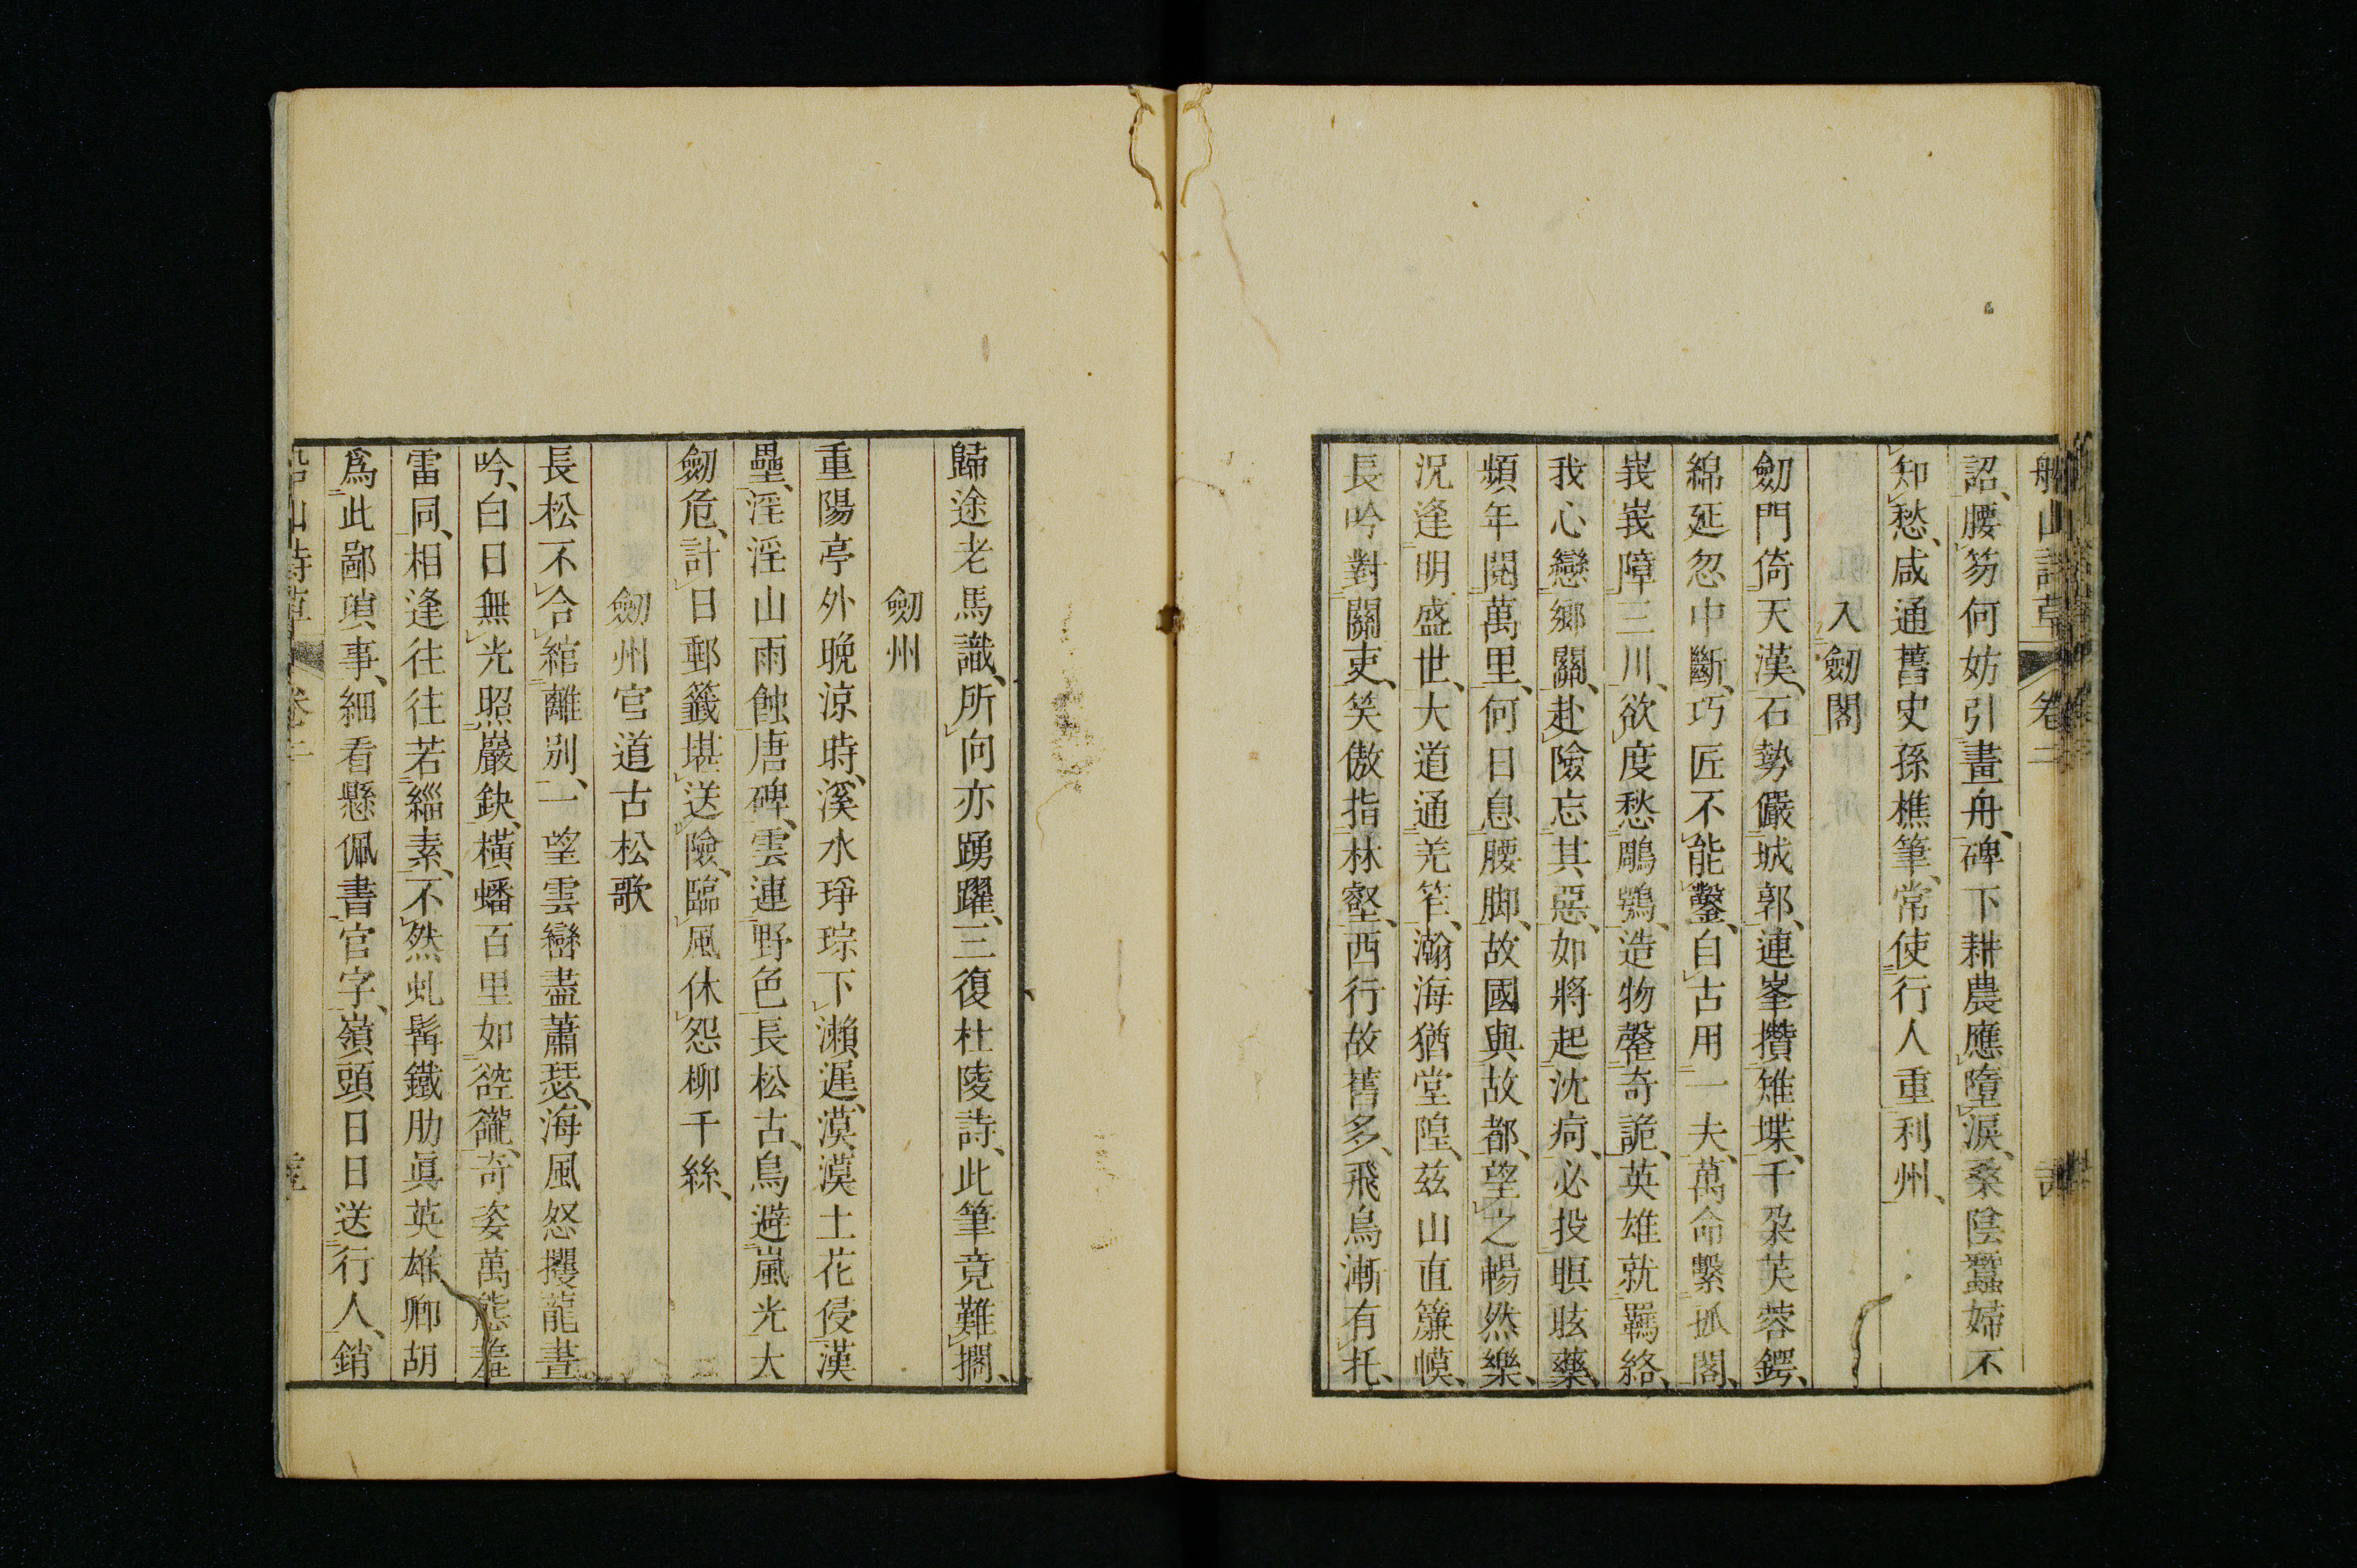 船山詩草 卷二
詔、腰笏何妨引畫舟、碑下耕農應墮淚、桑陰蠶婦不
知愁、咸通舊史孫樵筆、常使行人重利州、
入劒閣
劒門倚天漢、石勢儼城郭、連峯攢雉堞、千朶芙蓉鍔、
綿延忽中斷、巧匠不能鑿、自古用一夫、萬命繫孤閣、
峩峩障三川、欲度愁鵰鶚、造物罄奇詭、英雄就羈絡、
我心戀鄉關、赴險忘其惡、如將起沈痾、必投瞑眩藥、
頻年閱萬里、何日息腰脚、故國與故都、望之暢然樂、
況逢明盛世、大道通羌笮、瀚海猶堂隍、茲山直簾幙、
長吟對關吏、笑傲指林壑、西行故舊多、飛鳥漸有托、
歸途老馬識、所向亦踴躍、三復杜陵詩、此筆竟難擱、
劒州
重陽亭外晚涼時、溪水琤琮下瀨遲、漠漠土花侵漢
壘、淫淫山雨蝕唐碑、雲連野色長松古、鳥避嵐光大
劒危、計日郵籤堪送險、臨風休怨柳千絲、
劒州官道古松歌
長松不合綰離別、一望雲巒盡蕭瑟、海風怒攫龍晝
吟、白日無光照巖缺、橫蟠百里如硿礲、奇姿萬態羞
雷同、相逢往往若緇素、不然虬髯鐵肋眞英雄卿胡
爲此鄙瑣事、細看懸佩書官字、嶺頭日日送行人、銷
船山詩草 卷二